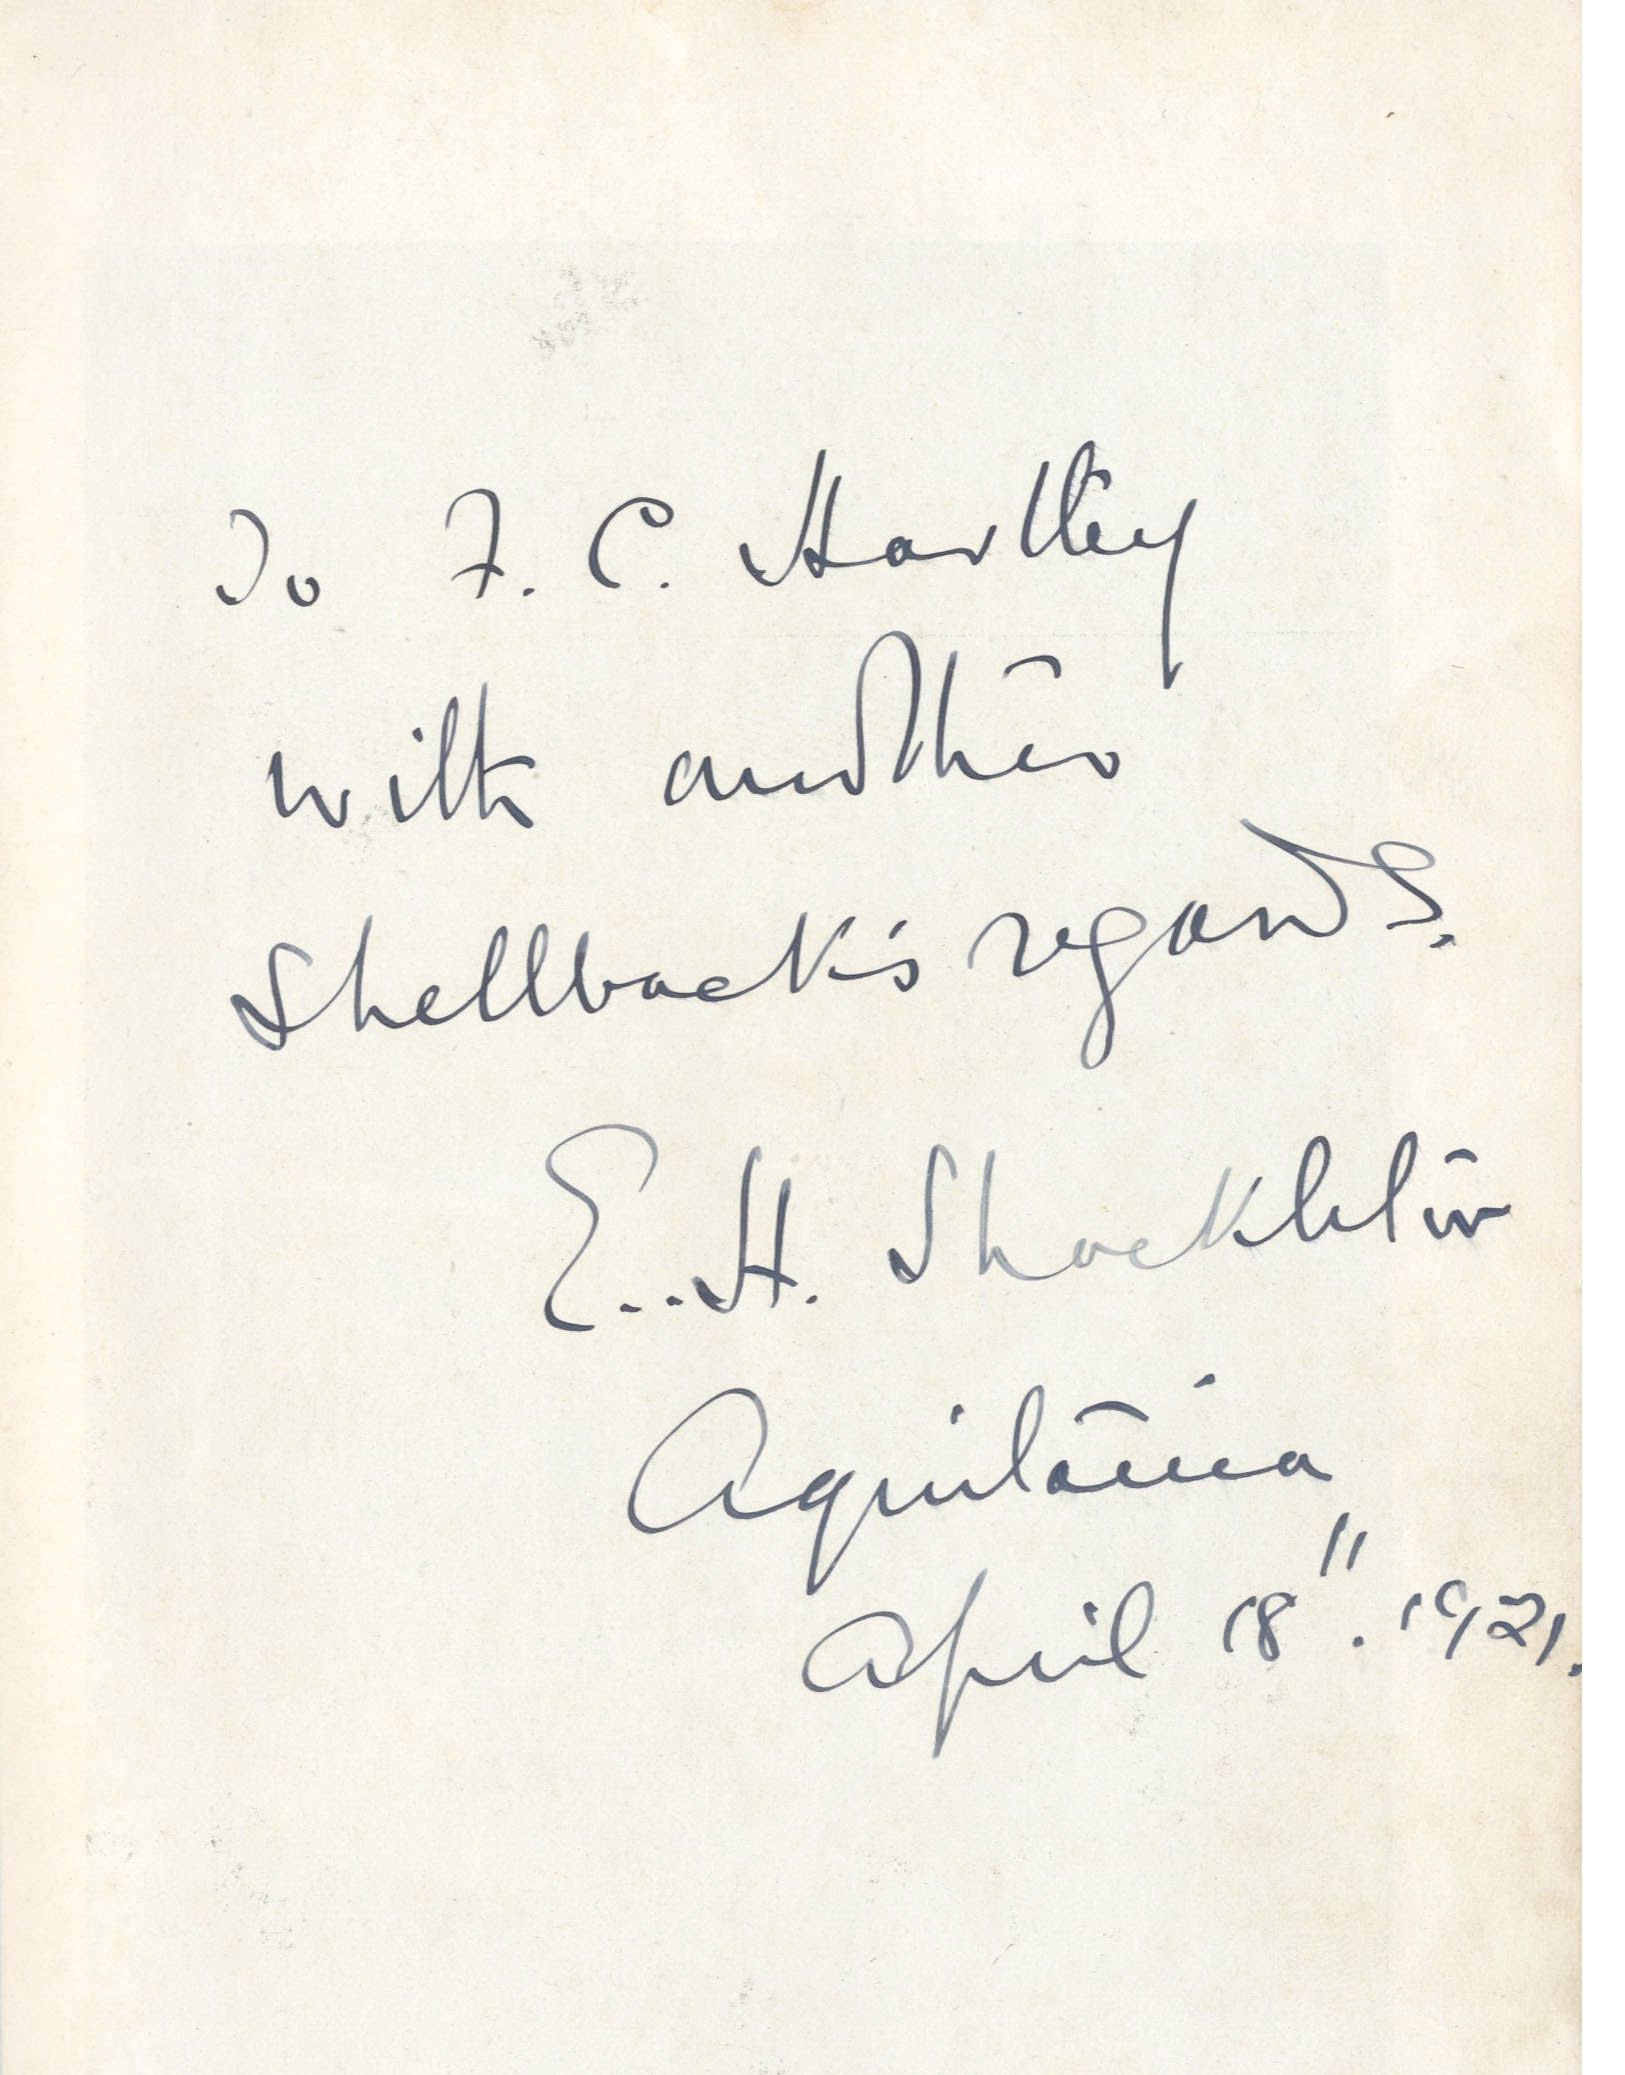 To F. C. Hartley
with another
Shellback's regards.
E.. H. Shackleton
Aquitania
April 18". 1921.